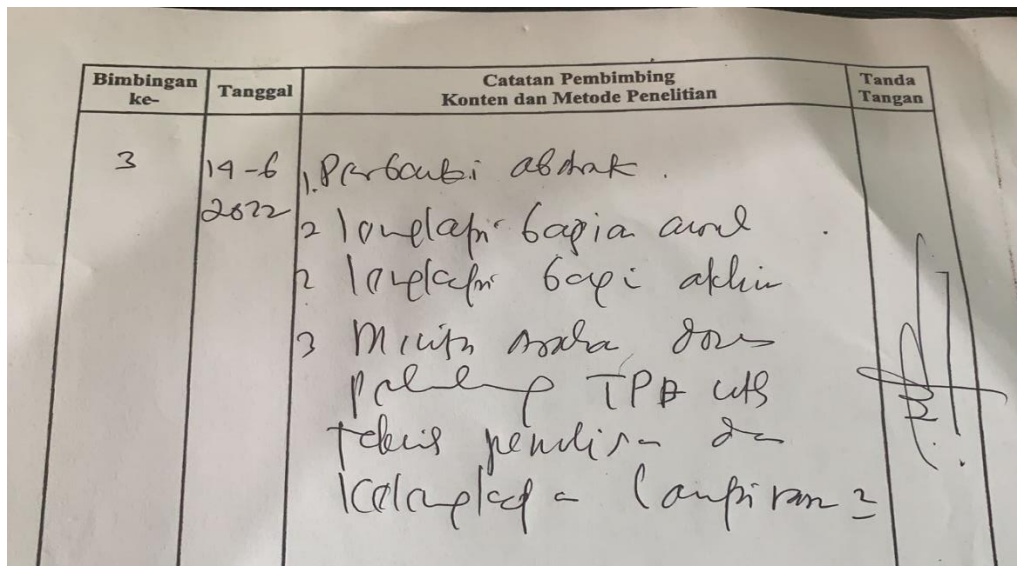 Bimbingan ke-
Tanggal
Catatan Pembimbing
Konten dan Metode Penelitian
Tanda Tangan
3
14-6
2022
1. Perbaiki abstrak.
2 lengkapi bagian awal
2 lengkapi bagi akhir
3 Minta arahan dosen
TPB utk
teknis penulisan dan
kelengkapan lampiran2